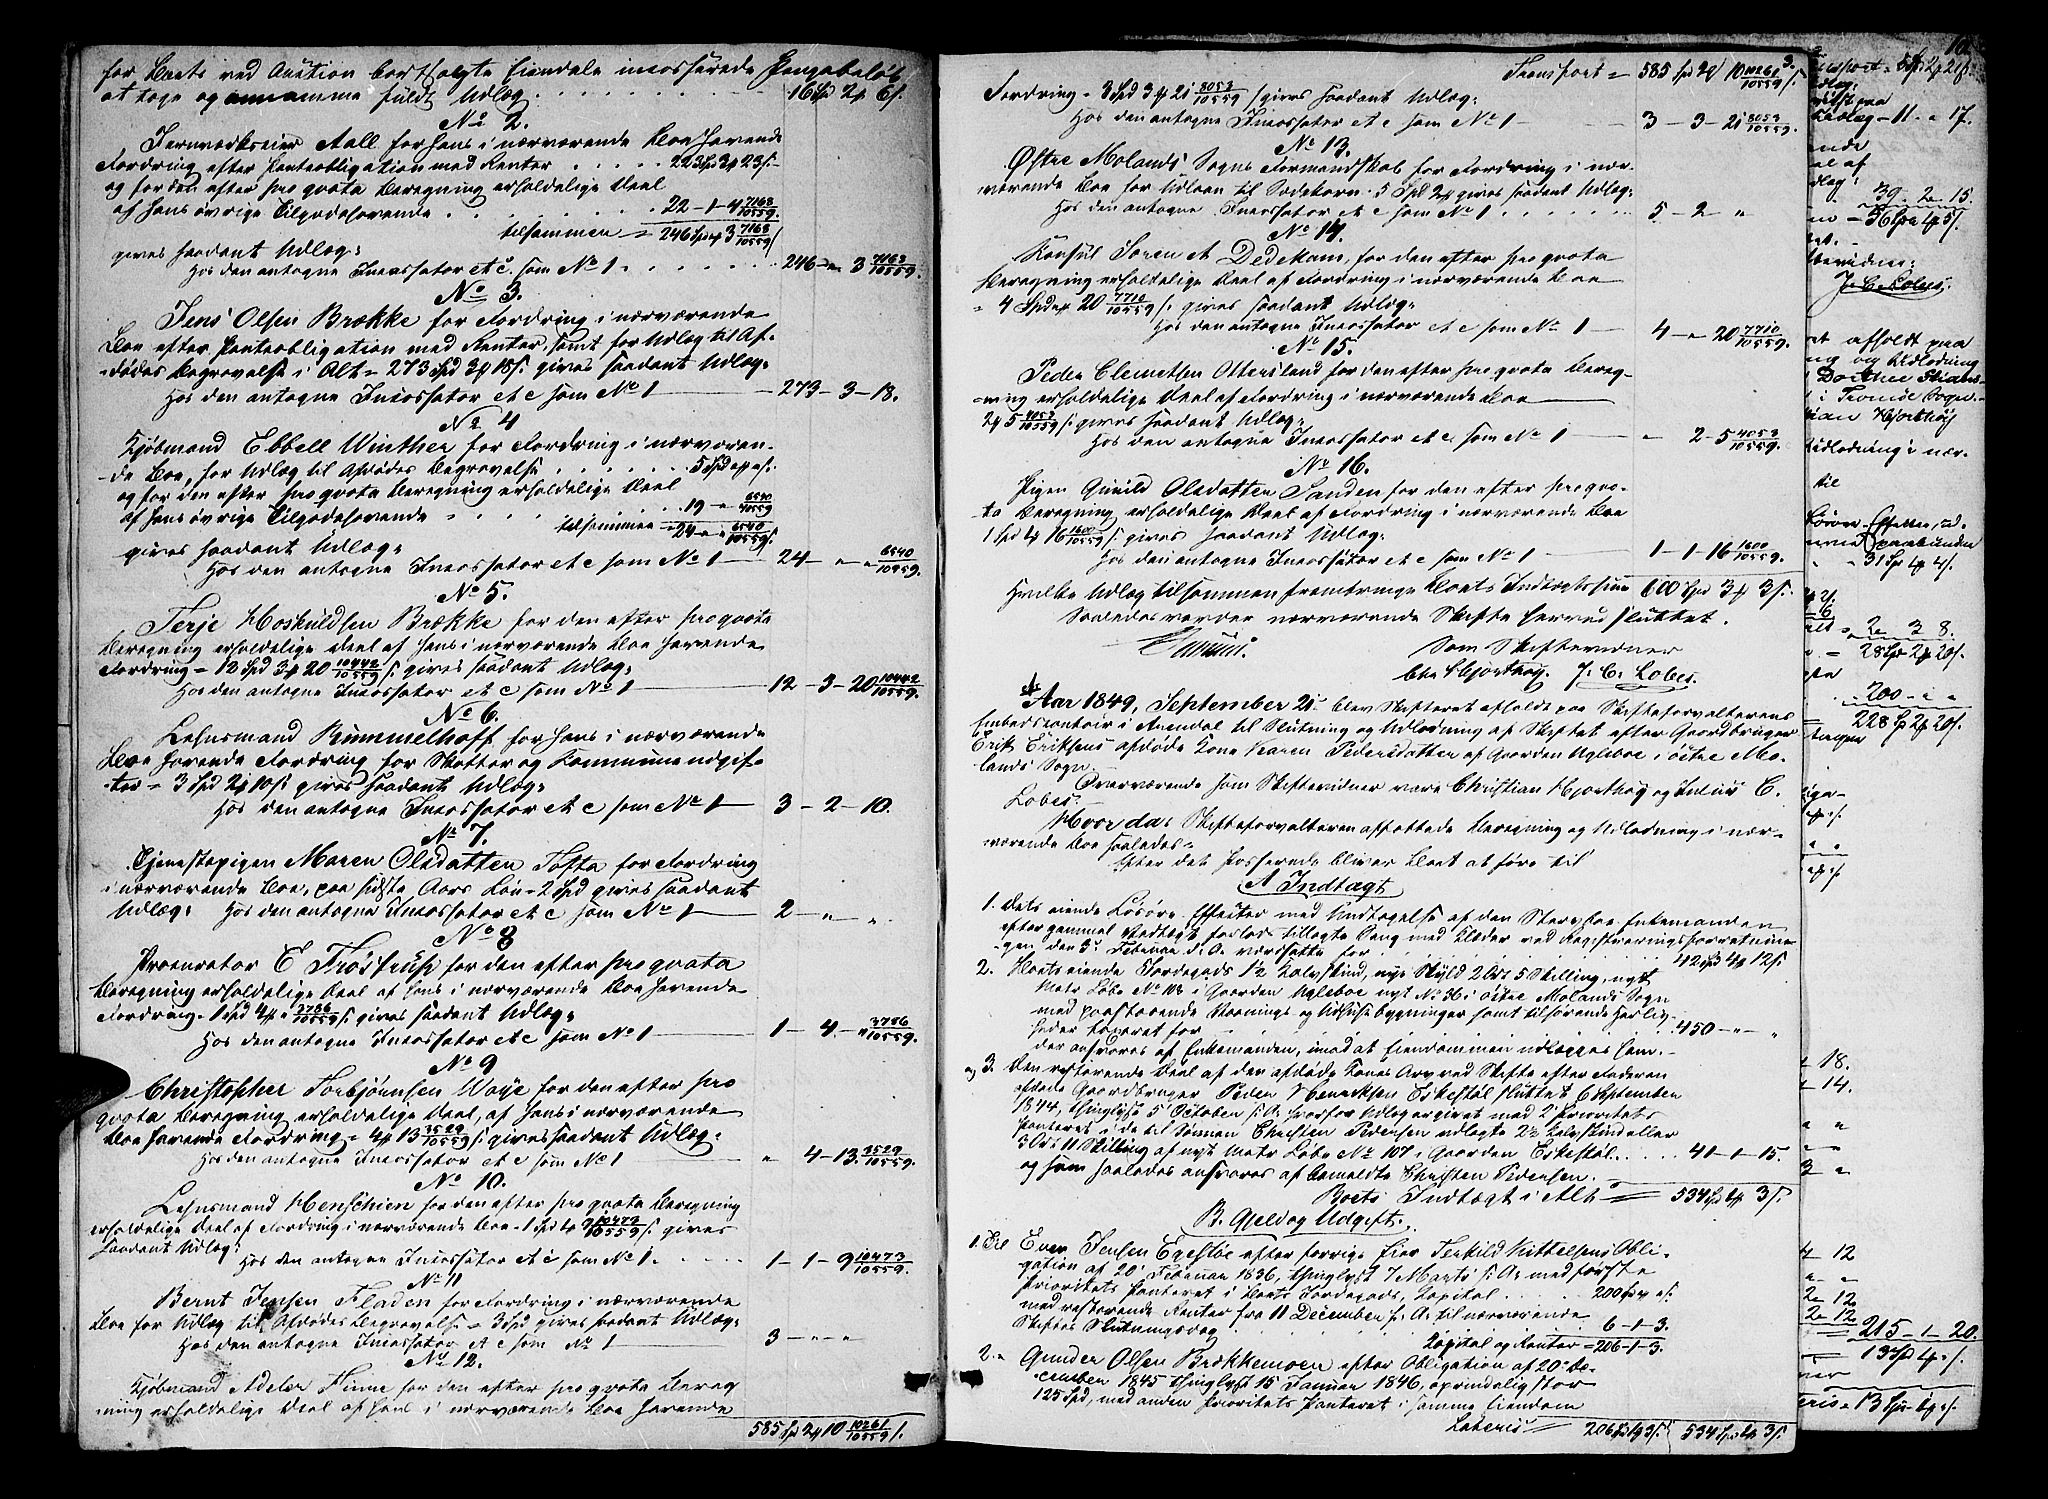 for Boets ved Auction bortsolgte Eiendele incasserede Pengebeløb
at tage og annamme fuldt Udlæg . . . . 16 Spd 2 # 6 s.
No 2.
Jernværkseier Aall for hans i nærværende Boe havende
Fordring efter Panteobligation med Renter . . . . 223 Sp 3 # 23 s.
og for den efter pro qvota Beregning erholdelige Deel
af hans øvrige Tilgodehavende . . . . 22 - 1 - 4 7168/10559
tilsammen = 246 Spd # 3 7168/10559 s
gives saadant Udlæg:
Hos den antagne Incassator etc. som No 1 . . . . 246 - " 3 7168/10559.
No 3.
Jens Olsen Brække for Fordring i nærværende
Boe efter Panteobligation med Renter, samt for Udlæg til Af-
dødes Begravelse i Alt = 273 Spd 3 # 18 s. gives saadant Udlæg:
Hos den antagne Incassator etc som No 1 — 273 - 3 - 18.
No 4
Kjøbmand Ebbell Winther for Fordring i nærværen-
de Boe, for Udlæg til Afdødes Begravelse . . . . 5 Spd # s.
og for den efter pro qvota Beregning erholdelige Deel
af hans øvrige Tilgodehavende . . . . 19 - " 6540/10559
tilsammen = 24 - " 6540/10559 s.
gives saadant Udlæg:
Hos den antagne Incassator etc som No 1 — 24 - " - " 6540/10559.
No 5.
Terje Hoskuldsen Brække for den efter pro qvota
Beregning erholdelige Deel af hans i nærværende Boe havende
Fordring = 12 Spd 3 # 20 10442/10559 s. gives saadant Udlæg:
Hos den antagne Incassator etc som No 1 — 12 - 3 - 20 10442/10559
No 6.
Lehnsmand Rummelhoff for hans i nærværende
Boe havende Fordring for Skatter og Kommuneudgif-
ter = 3 Spd 2 # 10 s. gives saadant Udlæg:
Hos den antagne Incassator etc som No 1 — 3 - 2 - 10.
No 7.
Tjenestepigen Maren Olsdatter Tofta for Fordring
i nærværende Boe, paa sidste Aars Løn = 2 Spd gives saadant
Udlæg: Hos den antagne Incassator etc som No 1 — 2 - " "
No 8
Procurator E Trøstrup for den efter pro qvota
Beregning erholdelige Deel af hans i nærværende Boe havende
Fordring = 1 Spd 4 # " 3786/10559 s. gives saadant Udlæg:
Hos den antagne Incassator etc som No 1 — 1 - 4 - " 3786/10559.
No 9
Christopher Torbjørnsen Waje for den efter pro
qvota Beregning erholdelige Deel, af hans i nærværende
Boe havende Fordring = 4 # 13 3529/10559 s gives saadant Udlæg:
Hos den antagne Incassator etc som No 1 — " 4 - 13 3529/10559.
No 10.
Lehnsmand Henschien for den efter pro qvota Beregning
erholdelige Deel af Fordring i nærværende Boe = 1 Spd 1 # 9 10473/10559 s. gives
saadant Udlæg:
Hos den antagne Incassator etc som No 1. . . . 1 - 1 - 9 10473/10559.
No 11
Bernt Jensen Fladen for Fordring i nærværende
Boe for Udlæg til Afdødes Begravelse = 3 Spd gives saadant Udlæg:
Hos den antagne Incassator etc som No 1 — 3 - " - "
No 12.
Kjøbmand Adeler Finne for den efter pro qvota Bereg
ning erholdelige Deel af hans i nærværende Boe havende
585 Spd 2 # 10 10261/10559 s.
3.
Transport = 585 Spd 2 # 10 10261/10559 s.
Fordring = 3 Spd 3 # 21 8053/10559 s gives saadant Udlæg:
Hos den antagne Incassator etc som No 1 — 3 - 3 - 21 8053/10559.
No 13.
Østre Molands Sogns Formandskab for Fordring i nær-
værende Boe for Udlaan til Sædekorn = 5 Spd 2 # gives saadant Udlæg:
Hos den antagne Incassator etc som No 1 . . . . 5 - 2 - "
No 14.
Konsul Søren et Dedekam, for den efter pro qvota
Beregning erholdelige Deel af Fordring i nærværende Boe
= 4 Spd # 20 7710/10559 s. gives saadant Udlæg:
Hos den antagne Incassator etc som No 1 — 4 - " 20 7710/10559.
No 15.
Peder Clemetsen Ottersland for den efter pro qvota Bereg-
ning erholdelige Deel af Fordring i nærværende Boe —
2 # 5 4053/10559 s. gives saadant Udlæg:
Hos den antagne Incassator etc som No 1 — " 2 - 5 4053/10559.
No 16.
Pigen Gunild Olsdatter Sanden for den efter pro qvo-
ta Beregning erholdelige Deel af Fordring i nærværende Boe
1 Spd 1 # 16 1600/10559 s. gives saadant Udlæg:
Hos den antagne Incassator etc som No 1 — 1 - 1 - 16 1600/10559.
Hvilke Udlæg tilsammen frembringe Boets Indtægtssum 600 Spd 3 # 3 s.
Saaledes varder nærværende Skifte herved sluttet.
Som Skiftevidner
Chr Hjorthøy. J. C. Lobes.
Aar 1849, September 21 blev Skifteret afholdt paa Skifteforvalterens
Embedscontoir i Arendal til Slutning og Udlodning af Skiftet efter Gaardbruger
Erik Eriksens afdøde Kone Karen Pedersdatter af Gaarden Ugleboe i østre Mo-
lands Sogn.
Overværende som Skiftevidner vare Christian Hjorthøy og Julius C.
Lobes.
Hvorda: Skifteforvalteren affattede Beregning og Udlodning i nær-
værende Boe saaledes:
Efter det Passerede bliver Boet at føre til
A Indtægt
1. Dets eiende Løsøre Effecter med Undtagelse af den Sterfboe Enkemanden
efter gammel Vedtægt forlods tillagte Seng med Klæder ved Registreringsforretnin-
gen den 3 Februar d. A. værdsatte for . . . . 42 Spd 4 # 12 s.
2. Boets eiende Jordegods 1½ Kalvskind, nye Skyld 2 Ort 5 Skilling, nyt
Matr Løbe No 108 i Gaarden Ugleboe nyt No 36 i østre Molands Sogn
med paastaaende Vaanings og Udhusebygninger samt tilhørende Herlig-
heder taxeret for . . . . 450 - " - "
der ansvares af Enkemanden, imod at Eiendommen udlægges ham.
og 3. Den resterende Deel af den afdøde Kones Arv ved Skifte efter Faderen
afdøde Gaardbruger Peder Henriksen Eskestøl sluttet 6 September
1844, thinglyst 5 October s. A. hvorfor Udlæg er givet med 2 Prioritets
Panteret i de til Sønnen Christen Pedersen udlagte 2½ Kalvskind eller
3 Ort 11 Skilling af nyt Matr Løbe No 107 i Gaarden Eskestøl . . . . 41 - 1 - 15.
og som saaledes ansvares af bemeldte Christen Pedersen.
Boets Indtægt i Alt = 534 Spd 1 # 3 s.
B. Gjeld og Udgift.
1. Til Even Jensen Egestøe efter forrige Eier Terkild Kittelsens Obli-
gation af 20 Februar 1836, thinglyst 7 Marts s. A. med første
Prioritets Panteret i Boets Jordegods, Capital . . . . 200 Spd # s.
med resterende Renter fra 11 December f. A. til nærværende
Skiftes Slutningsdag . . . . 6 - 1 - 3.
Capital og Renter = 206 - 1 - 3.
2. " Gunder Olsen Brækkemoen efter Obligation af 20 De-
cember 1845 thinglyst 15 Januar 1846, oprindelig stor
125 Spd, med anden Prioritets Panteret i samme Eiendom
Lateris = 206 Spd 1 # 3 s. 534 Spd 1 # 3 s.
11 - " 17.
39 - 2 - 15.
J. C. Lobes.
afholdt paa
og Udlodning
Dorthee Stians-
i Tromøe Sogn
Hjorthøy
Udlodning i nær-
til
3 8.
200 - " "
228 Sp 2 # 20 s.
18.
14.
215 - 1 - 20.